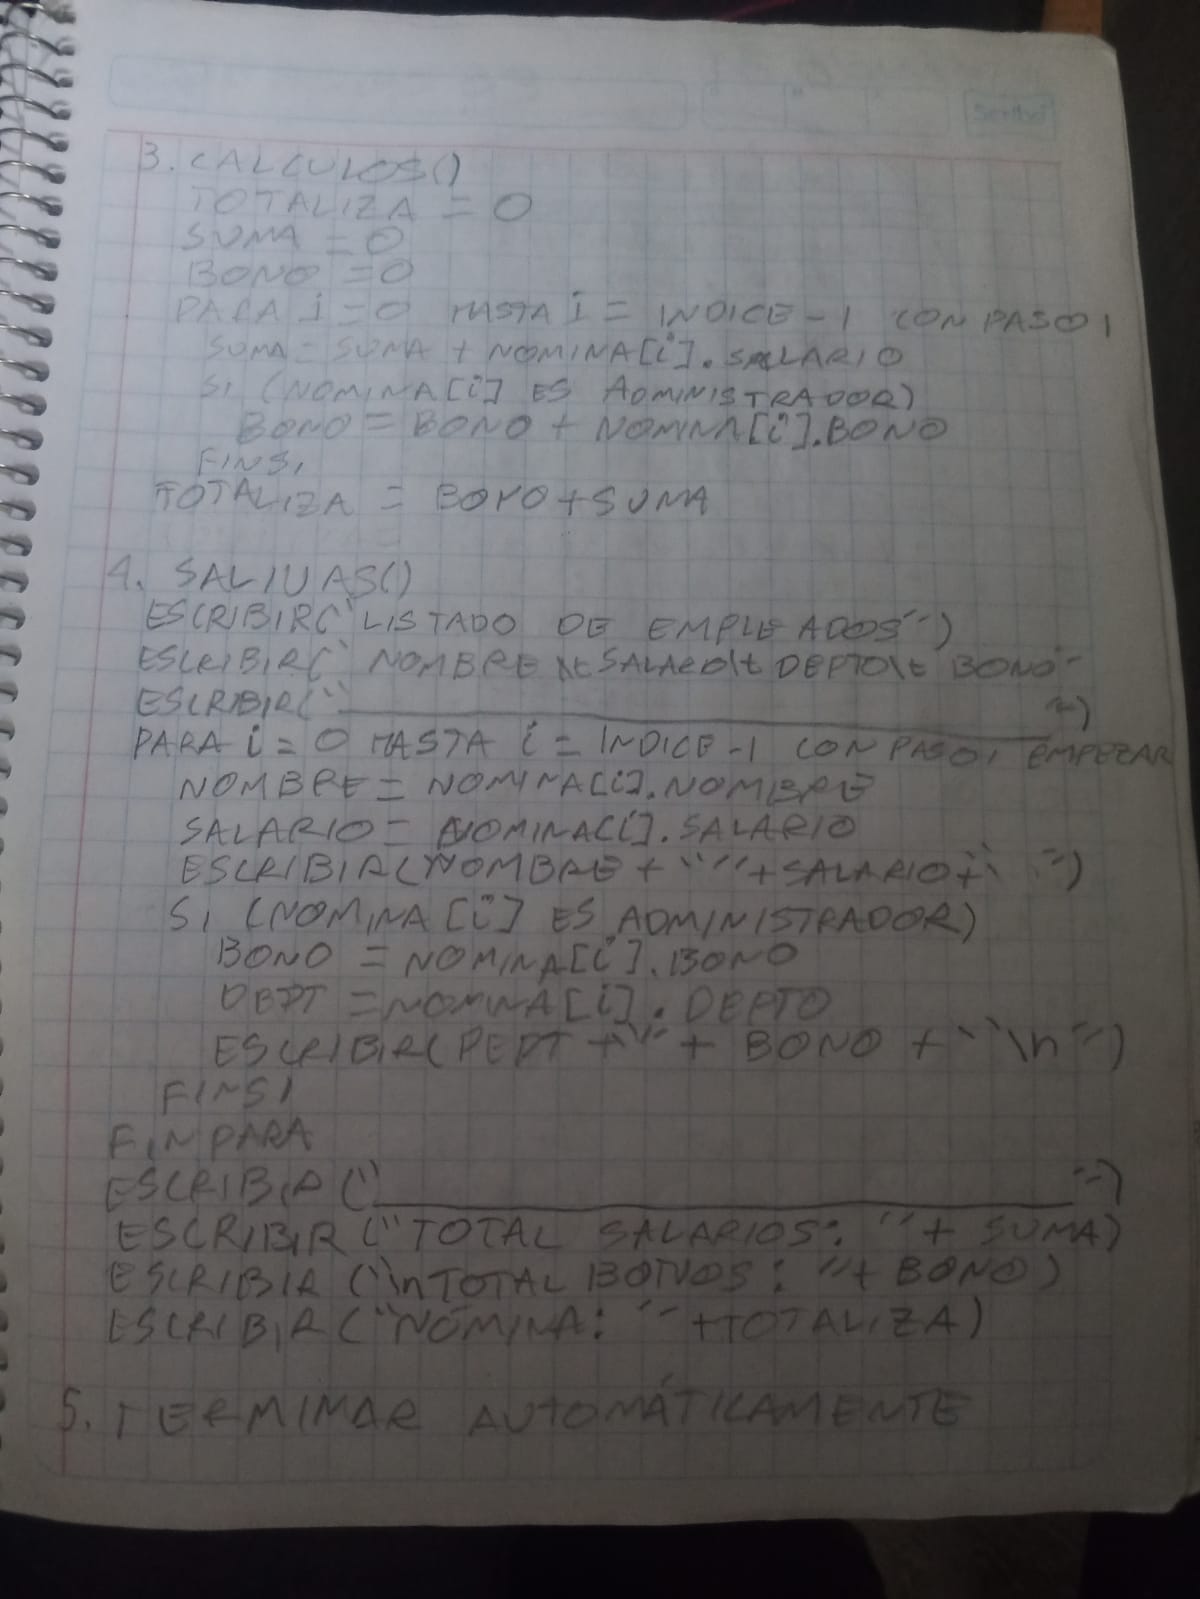 Scribe
3. CALCULOS()
TOTALIZA = 0
SUMA = 0
BONO = 0
PARA i = 0 HASTA i = INDICE - 1 CON PASO 1
SUMA = SUMA + NOMINA[i]. SALARIO
SI (NOMINA[i] ES ADMINISTRADOR)
BONO = BONO + NOMINA[i]. BONO
FINSI
TOTALIZA = BONO + SUMA
4. SALIDAS()
ESCRIBIR("LISTADO DE EMPLEADOS")
ESCRIBIR(" NOMBRE \t SALARO\t DEPTO\t BONO"
ESCRIBIR("____________________")
PARA i = 0 HASTA i = INDICE - 1 CON PASO 1 EMPEZAR
NOMBRE = NOMINA[i]. NOMBRE
SALARIO = NOMINA[i]. SALARIO
ESCRIBIR(NOMBRE + " " + SALARIO + " ")
SI (NOMINA [i] ES ADMINISTRADOR)
BONO = NOMINA[i]. BONO
DEPT = NOMINA[i]. DEPTO
ESCRIBIR(DEPT + " " + BONO + "\n")
FINSI
FINPARA
ESCRIBIR ("____________________")
ESCRIBIR ("TOTAL SALARIOS: " + SUMA)
ESCRIBIR ("\nTOTAL BONOS: " + BONO)
ESCRIBIR ("NÓMINA: " + TOTALIZA)
5. TERMINAR AUTOMÁTICAMENTE